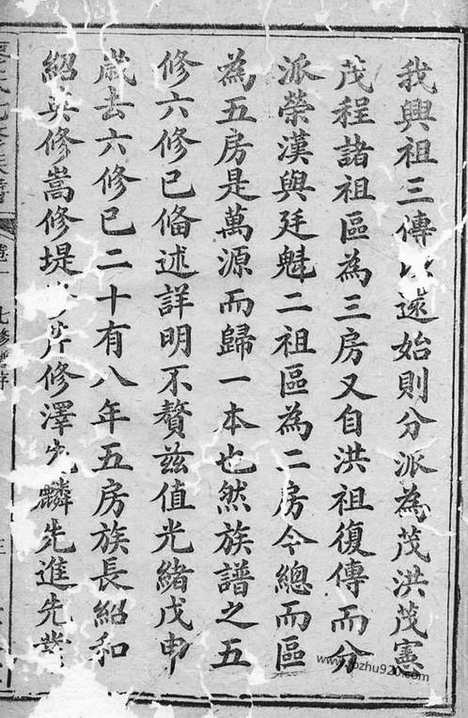 我興祖三傳以遠始則分派為茂洪茂憲
茂程諸祖區為三房又自洪祖復傳而分
派榮漢與廷魁二祖區為二房今總而區
為五房是萬源而歸一本也然族譜之五
修六修已俻述詳明不贅兹值光緒戊申
歲去六修已二十有八年五房族長紹和
紹英修嵩修堤修澤先麟先進先
七修譜序
www.jiapu920.com